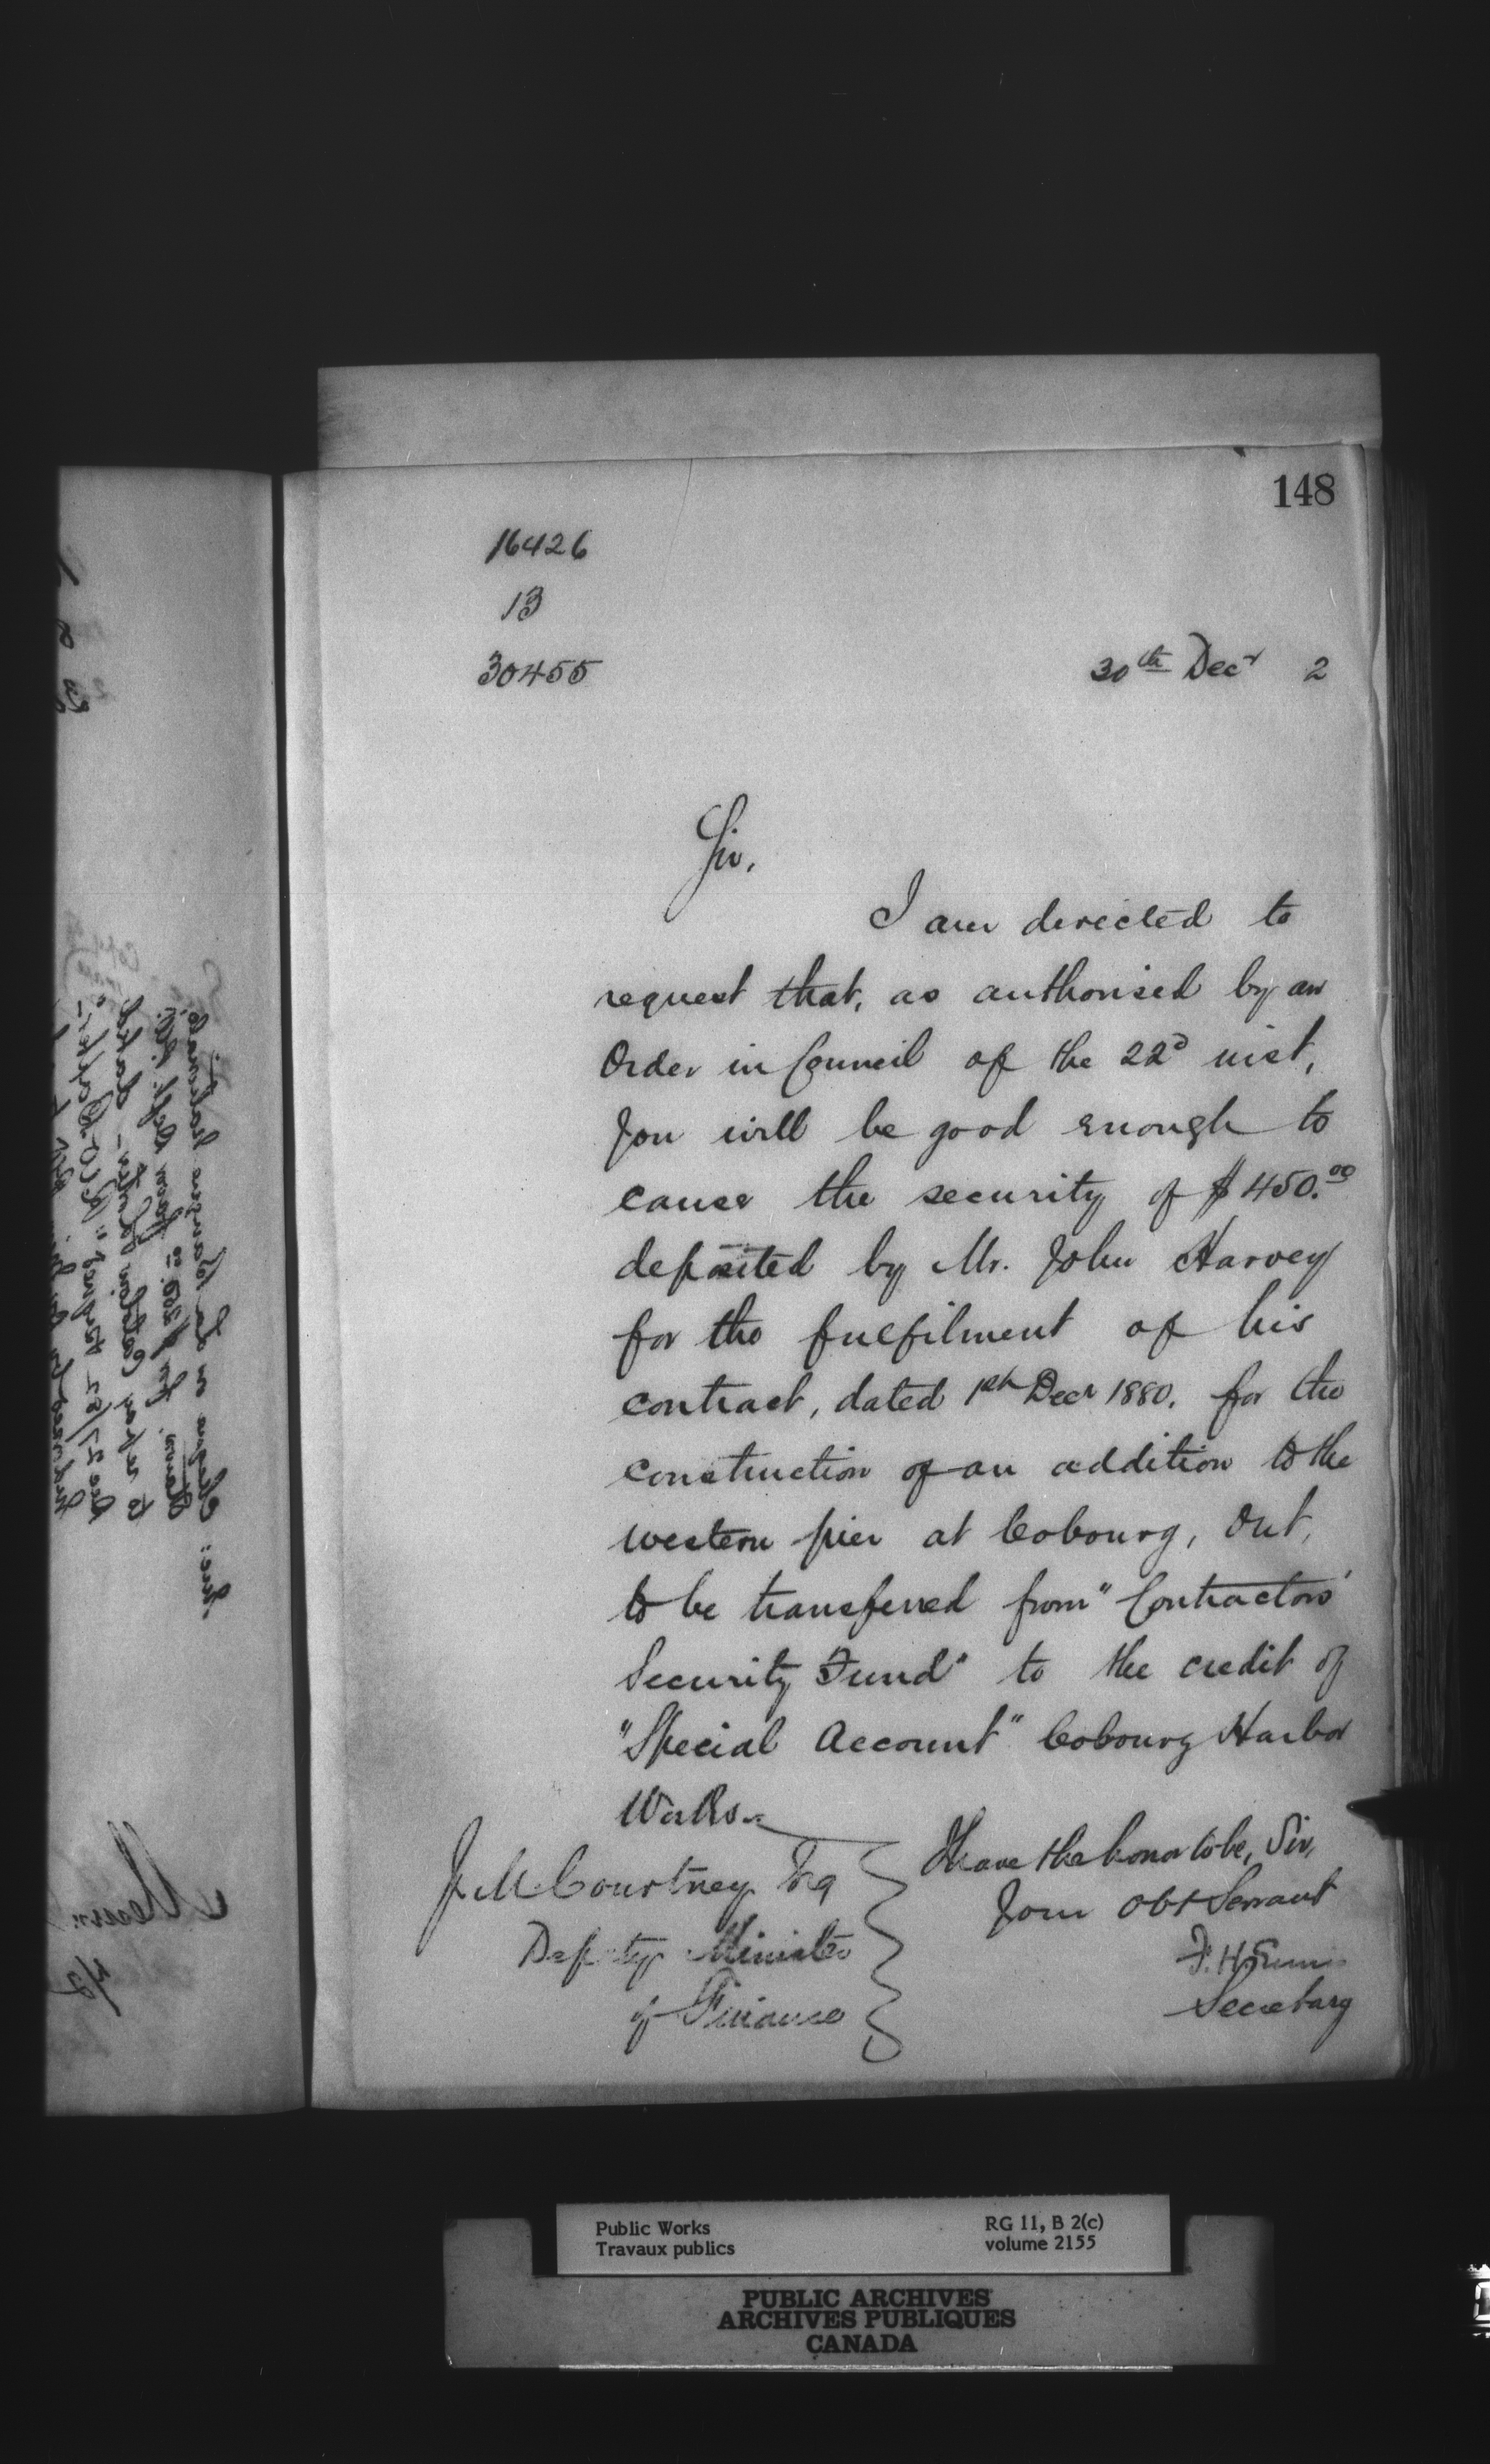 148
16426
13
30455
30th Decr 2
Sir,
I am directed to
request that, as authorised by an
Order in Council of the 22d inst,
you will be good enough to
cause the security of $450.00
deposited by Mr. John Harvey
for the fulfilment of his
contract, dated 1st Decr 1880. for the
construction of an addition to the
western pier at Cobourg, Ont,
to be transferred from "Contractors'
Security Fund" to the credit of
"Special Account" Cobourg Harbor
Works.
I have the honor to be, Sir,
Your Obt Servant
F. H. Ennis
Secretary
J. M. Courtney Esq
Deputy Minister
of Finance
Public Works
Travaux publics
RG 11, B 2(c)
volume 2155
PUBLIC ARCHIVES
ARCHIVES PUBLIQUES
CANADA